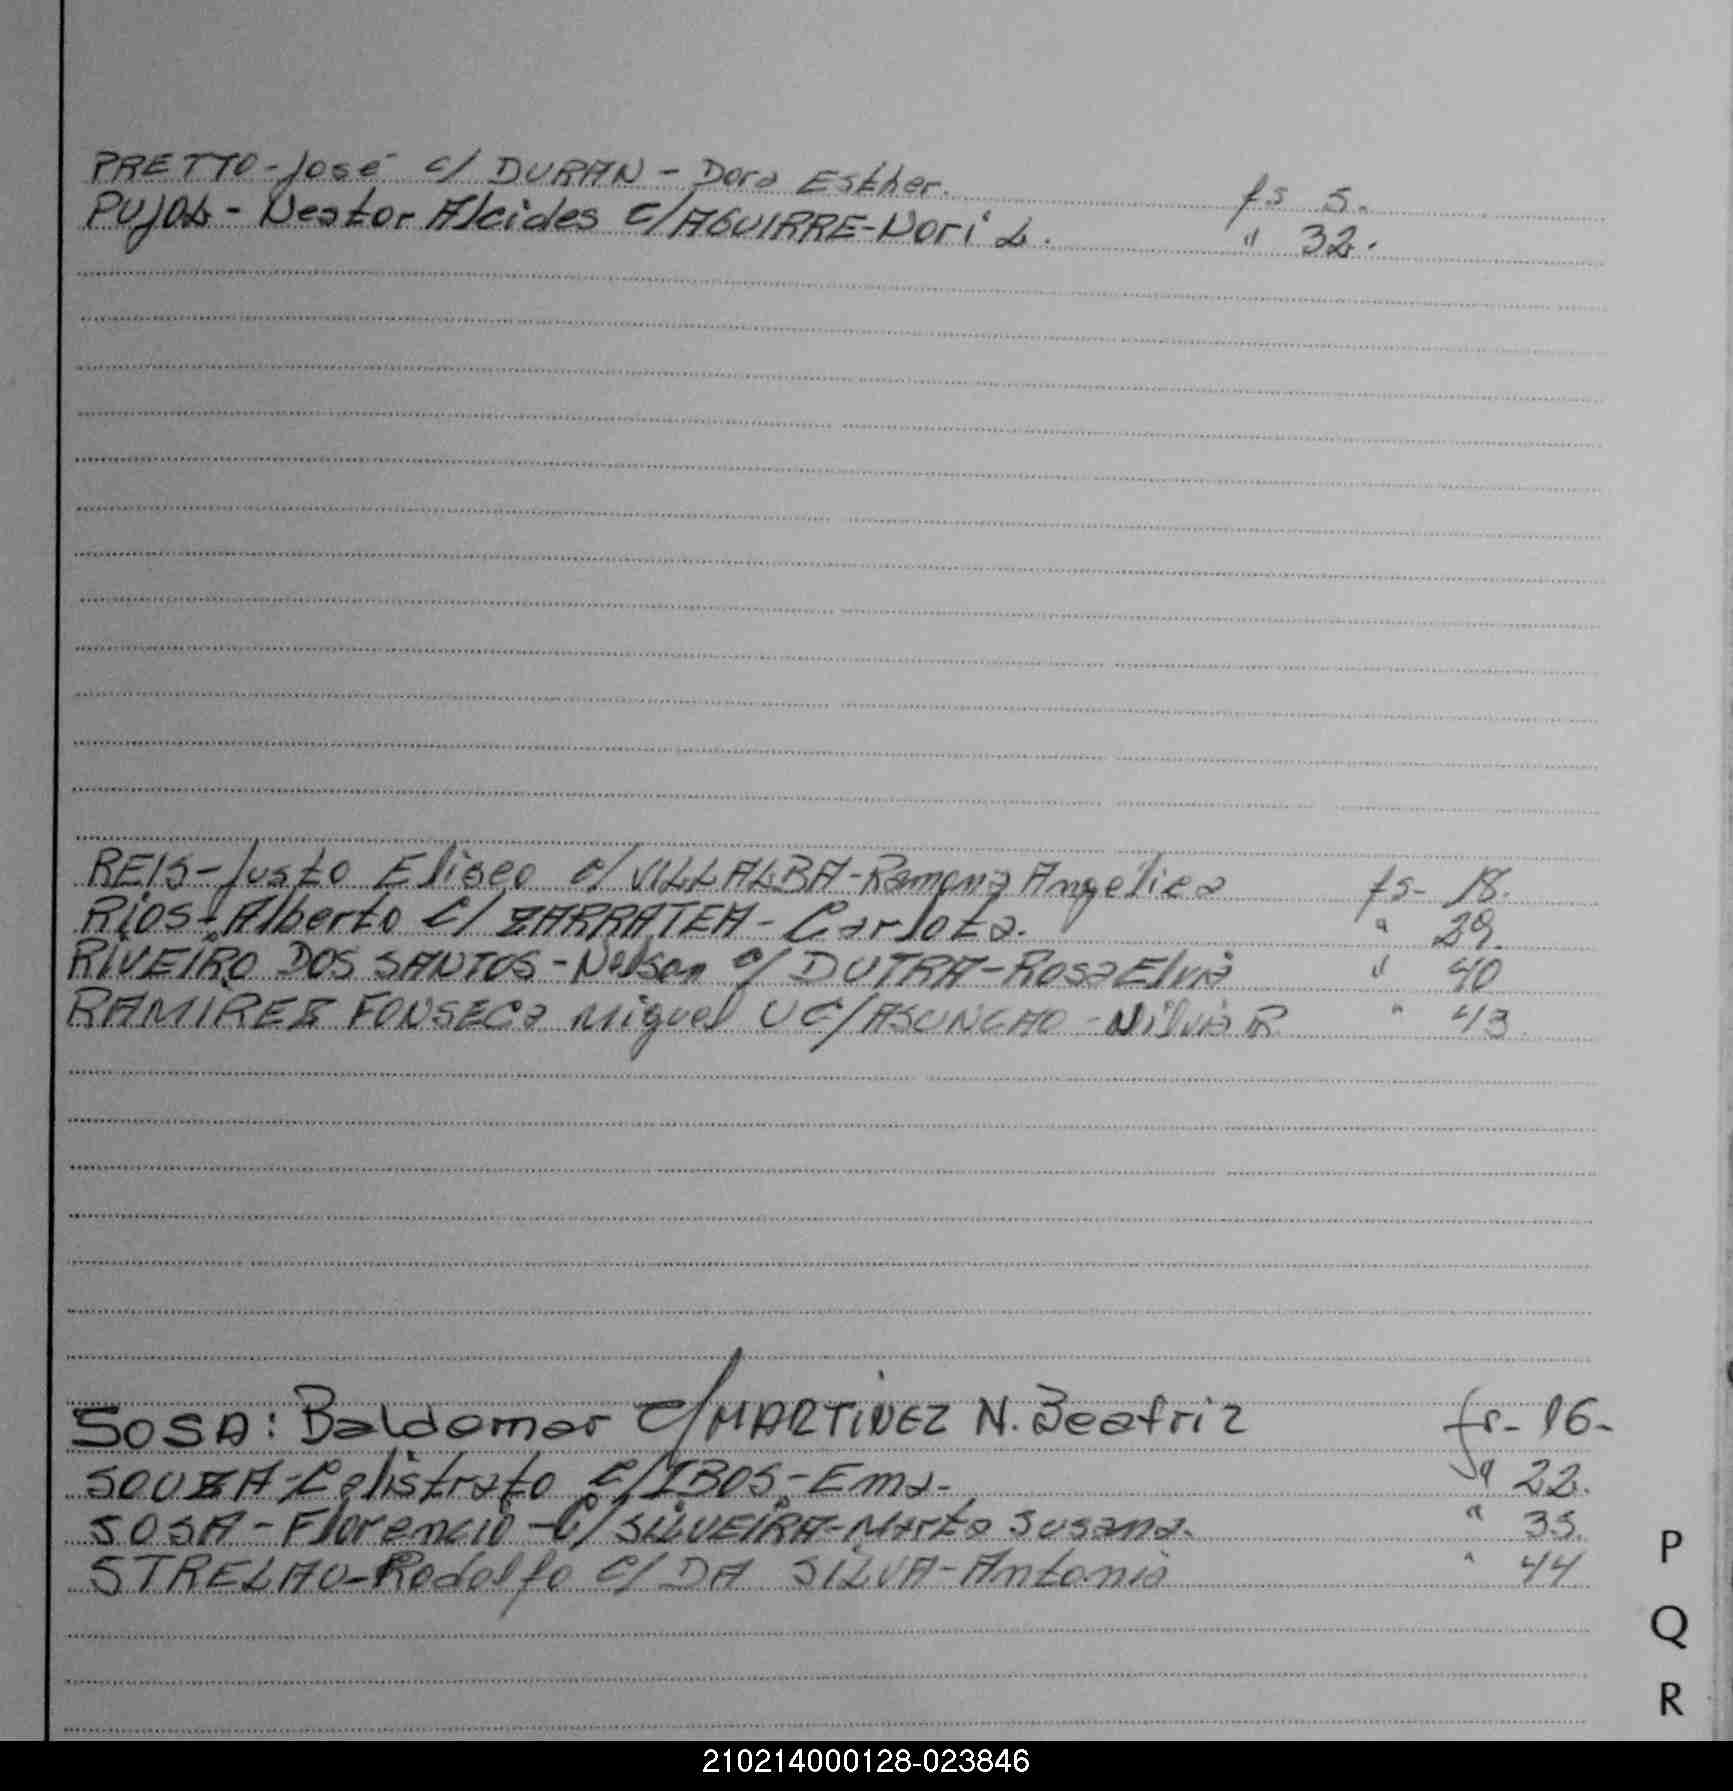 PRETTO - José c/ DURAN - Dora Esther. fs 5.
PUJOL - Nestor Alcides c/ AGUIRRE - Nori L. " 32.
REIS - Justo Eliseo c/ VILLALBA - Ramona Angelica fs - 18.
RIOS - Alberto c/ ZARRATEA - Carlota. " 29.
RIVEIRO DOS SANTOS - Nelson c/ DUTRA - Rosa Elvia " 40
RAMIREZ FONSECA Miguel U C/ ASUNCAO - Nilvia R " 43
SOSA: Baldomar C/ MARTINEZ N. Beatriz fs - 16 -
SOUZA - Calistrato C/ IBOS - Ema - " 22.
SOSA - Florencio - C/ SILVEIRA - Marta Susana. " 35.
STRELAU - Rodolfo c/ DA SILVA - Antonia " 44
P
Q
R
210214000128-023846